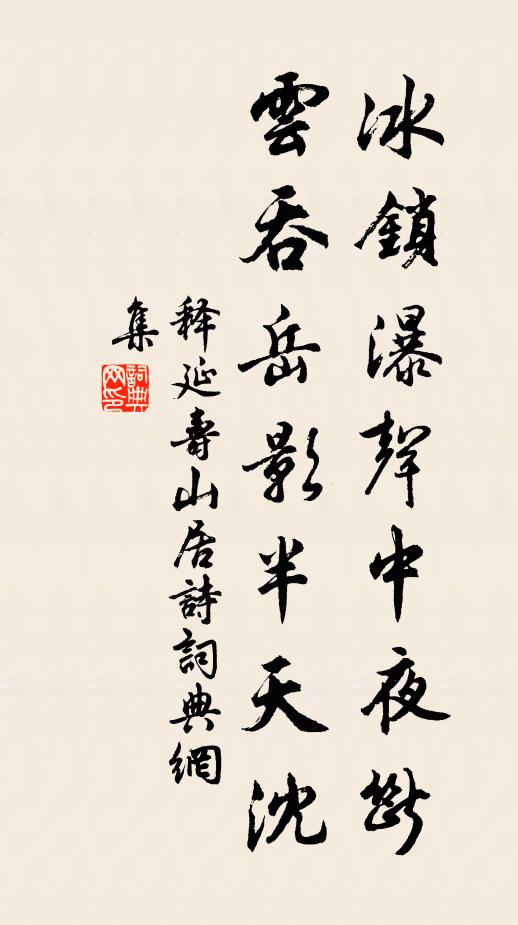 冰鎖瀑聲中夜斷
雲吞岳影半天沈
释延壽山居詩詞典網
集
詞典网印